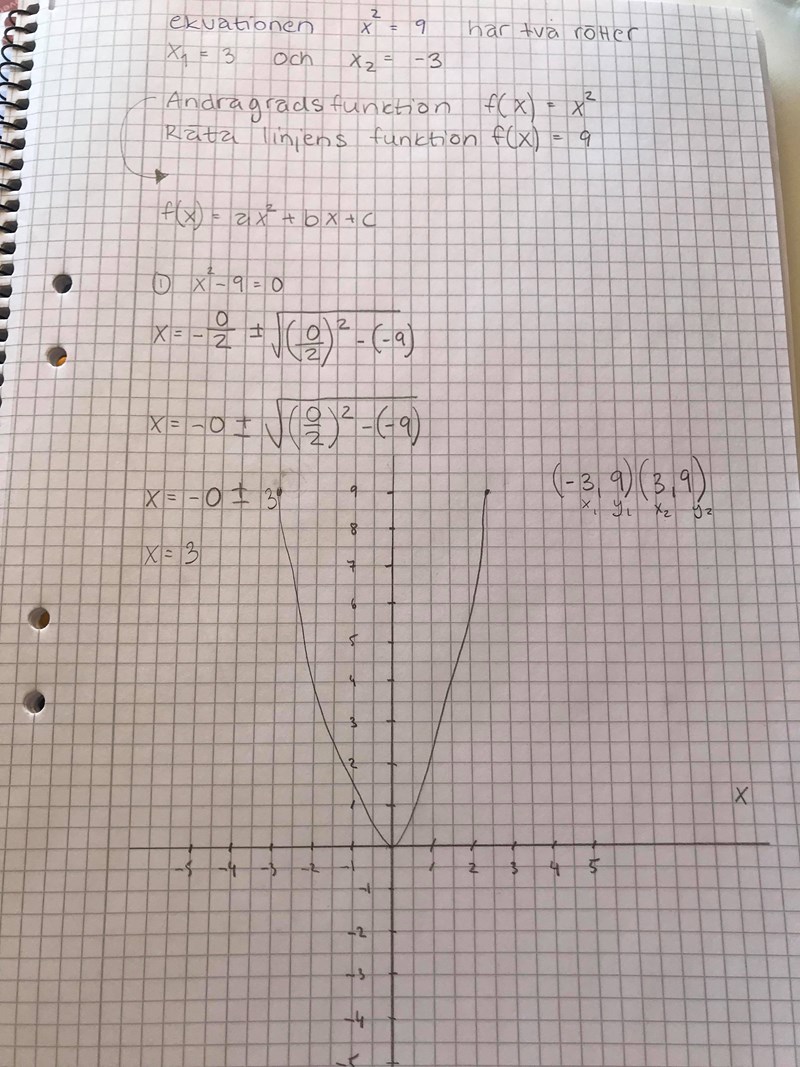 ekvationen x² = 9 har två rötter
x₁ = 3 och x₂ = -3
Andragradsfunction f(x) = x²
Räta linjens funktion f(x) = 9
f(x) = ax² + bx + c
① x² - 9 = 0
x = -0/2 ± √(0/2)² - (-9)
x = -0 ± √(0/2)² - (-9)
(-3, 9)(3, 9)
x₁ y₁ x₂ y₂
x = -0 ± 3
x = 3
9
8
7
6
5
4
3
2
1
X
-5 -4 -3 -2 -1 1 2 3 4 5
-1
-2
-3
-4
-5